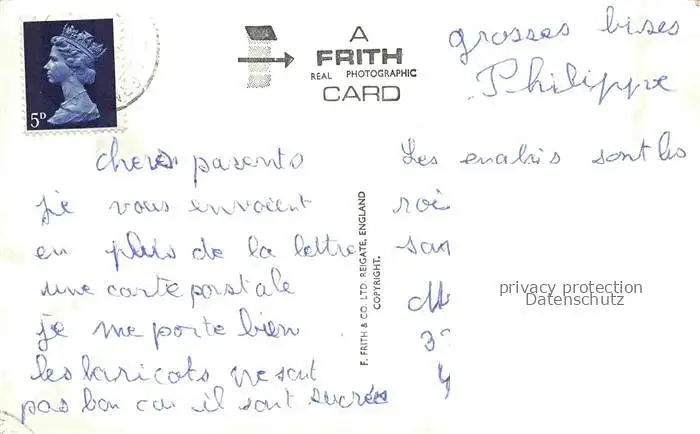 5D
A
FRITH
REAL PHOTOGRAPHIC
CARD
grosses bises
Philippe
chers parents
je vous envoient
en plus de la lettre
une carte postale
je me porte bien
les haricots ne sont
pas bon car il sont sucrées
F. FRITH & CO. LTD. REIGATE, ENGLAND
COPYRIGHT.
Les sont
roi
san
privacy protection
Datenschutz